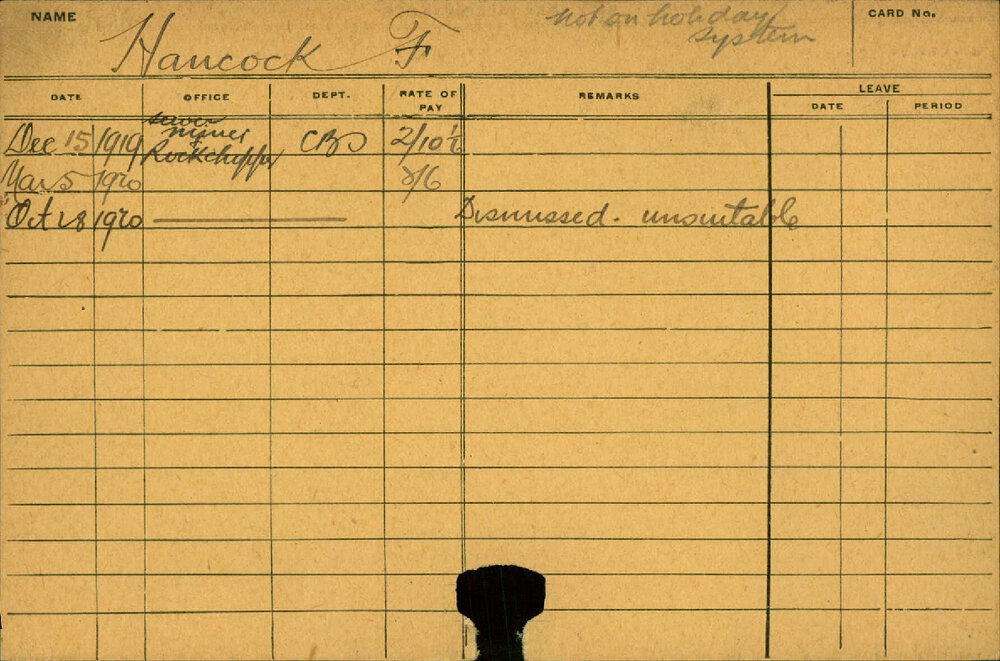 NAME Hancock F not on holiday CARD No.
system
DATE OFFICE DEPT. RATE OF PAY REMARKS LEAVE
DATE PERIOD
Dec 15 1919 Sewer Miner & Rockchipper CBD 2/10½
Mar 5 1920 3/6
Oct 28 1920 Dismissed. unsuitable